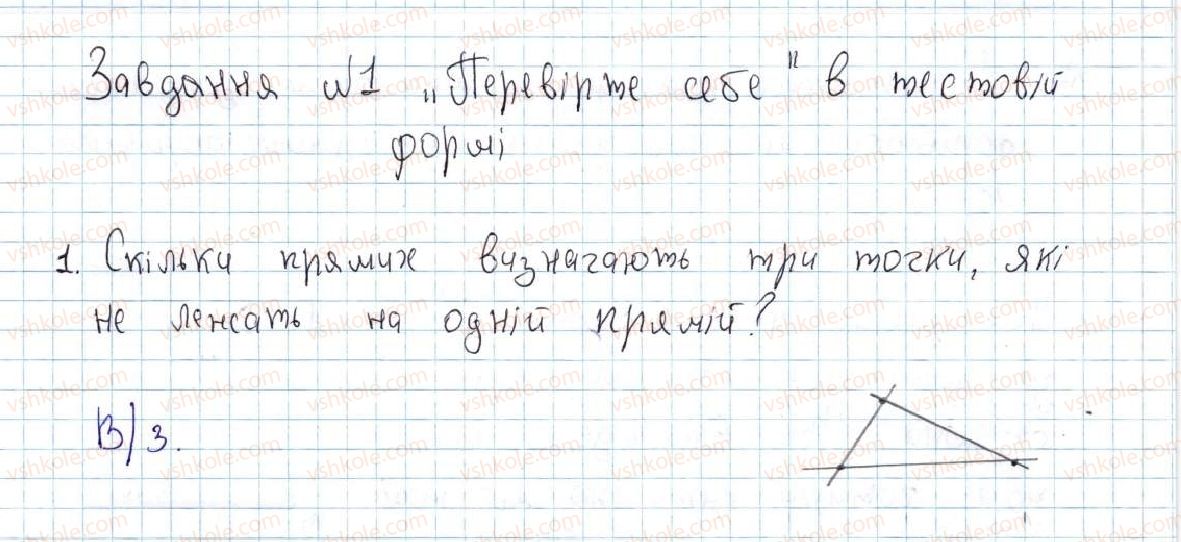 Завдання №1 „Перевірте себе" в тестовій
формі
1. Скільки прямих визначають три точки, які
не лежать на одній прямій?
В) 3.
vshkole.com